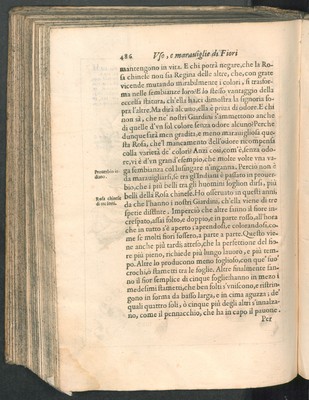 486 Vso, e marauiglie di Fiori
mantengono in vita. E chi potrà negare, che la Ro-
sa chinese non sia Regina delle altre, che, con grate
vicende mutando mirabilmente i colori, si trasfor-
ma nelle sembianze loro? E lo stesso vantaggio della
eccelsa statura, ch'ella ha, ci dimostra la signoria so-
pra l'altre. Ma dirà alcuno, ella è priua di odore. E chi
non sà, che ne' nostri Giardini s'ammettono anche
di quelle d'vn sol colore senza odore alcuno? Perche
dunque sarà men gradita, e meno marauigliosa que-
sta Rosa, che'l mancamento dell'odore ricompensa
colla varietà de' colori? Anzi così, com'è, senza odo-
re, vi è d'vn grand'esempio, che molte volte vna va-
ga sembianza col lusingare n'inganna. Perciò non è
Prouerbio in-
diano.
da marauigliarsi, se tra gl'Indiani è passato in prouer-
bio, che i più belli tra gli huomini soglion dirsi, più
Rosa chinese
di tre sorti.
belli della Rosa chinese. Hò osseruato in questi anni,
da che l'hanno i nostri Giardini, ch'ella viene di tre
spetie distinte. Imperciò che altre fanno il fiore in-
crespato, assai folto, e doppio, in parte russo, all'hora
che in tutto s'è aperto; aprendosi, e colorandosi, co-
me se molti fiori fussero, a parte a parte. Questo vie-
ne anche più tardi attesò, che la perfettione del fio-
re più pieno, richiede più lungo lauoro, e più tem-
po. Altre lo producono meno fogliuto, con que' suo'
crochi, ò stametti tra le foglie. Altre finalmente fan-
no il fior semplice di cinque foglie; hanno in mezo i
medesimi stametti, che ben folti s'vniscono, e ristrin-
gono in forma da basso larga, e in cima aguzza; de'
quali quattro soli, ò cinque più degli altri s'innalza-
no, come il pennecchio, che ha in capo il pauone.
Per